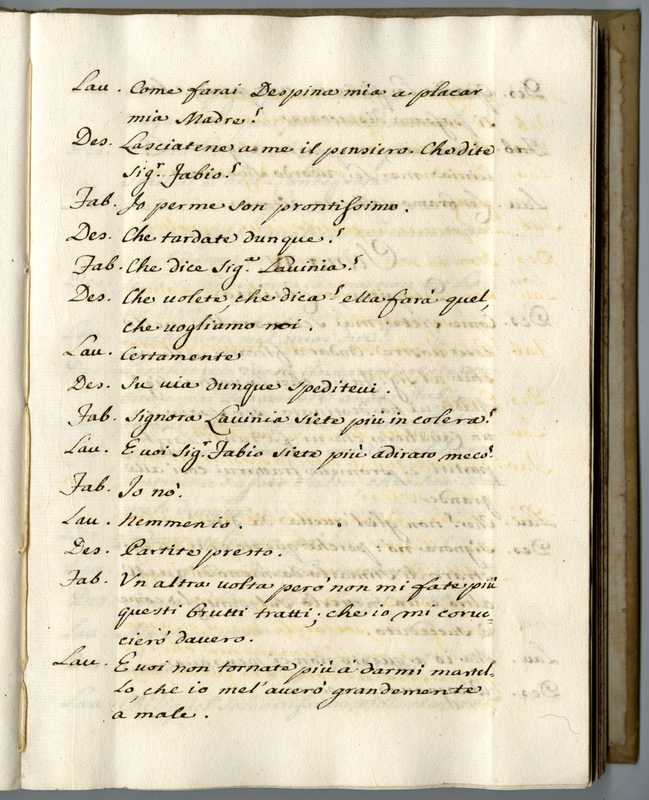 Lau. Come farai Despina mia a placar
mia Madre?
Des. Lasciatene a me il pensiero. Che dite
Sig.r Fabio?
Fab. Io per me son prontissimo.
Des. Che tardate dunque?
Fab. Che dice Sig.ra Lavinia?
Des. Che volete, che dica? ella farà quel,
che vogliamo noi.
Lau. Certamente
Des. Su via dunque speditevi.
Fab. Signora Lavinia siete più in colera?
Lau. E voi Sig.r Fabio siete più adirato meco?
Fab. Io nò.
Lau. Nemmen io.
Des. Partite presto.
Fab. Un altra volta però non mi fate più
questi brutti tratti; che io mi coruc=
cierò davero.
Lau. E voi non tornate più à darmi martel=
lo, che io mel'averò grandemente
a male.